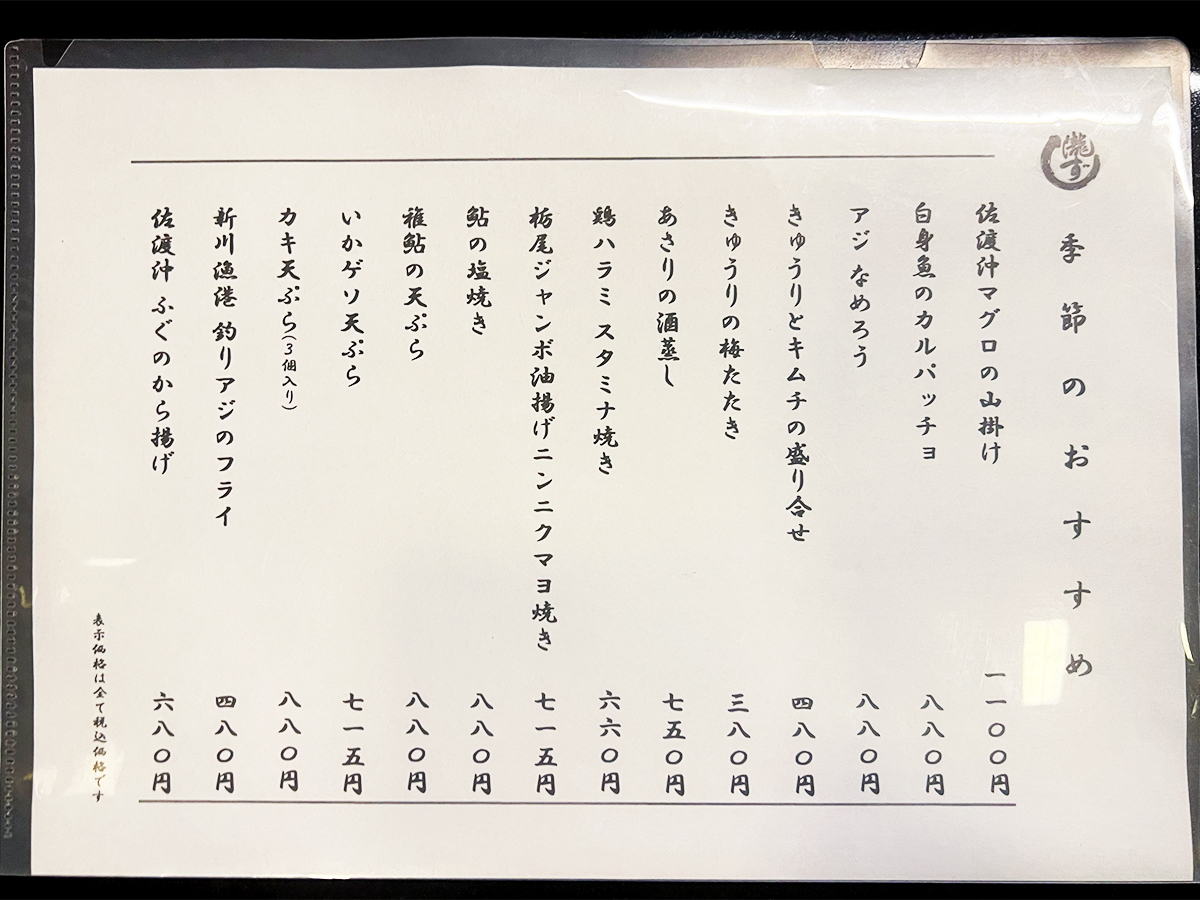 瀧ず
季節のおすすめ
佐渡沖マグロの山掛け 一一〇〇円
白身魚のカルパッチョ 八八〇円
アジ なめろう 八八〇円
きゅうりとキムチの盛り合せ 四八〇円
きゅうりの梅たたき 三八〇円
あさりの酒蒸し 七五〇円
鶏ハラミ スタミナ焼き 六六〇円
栃尾ジャンボ油揚げニンニクマヨ焼き 七一五円
鮎の塩焼き 八八〇円
稚鮎の天ぷら 八八〇円
いかゲソ天ぷら 七一五円
カキ天ぷら(3個入り) 八八〇円
新川漁港 釣りアジのフライ 四八〇円
佐渡沖 ふぐのから揚げ 六八〇円
表示価格は全て税込価格です